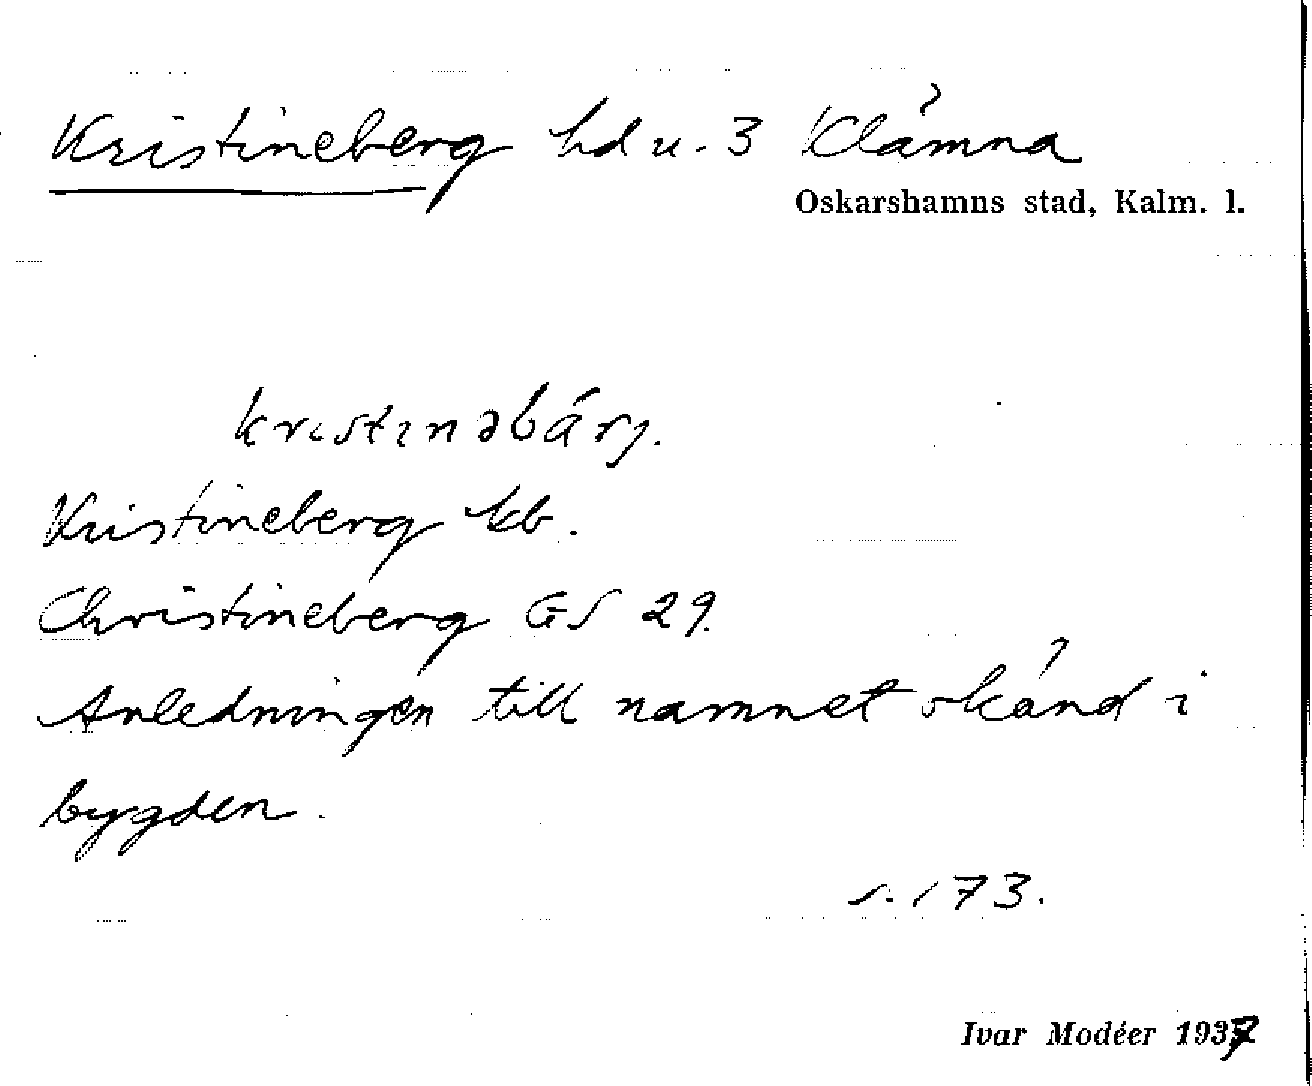 Kristineberg hd u. 3 Klämna
Oskarshamns stad, Kalm. l.
kristinəbárj.
Kristineberg kb.
Christineberg GS 29.
Anledningen till namnet okänd i
bygden.
s. 173.
Ivar Modéer 1937